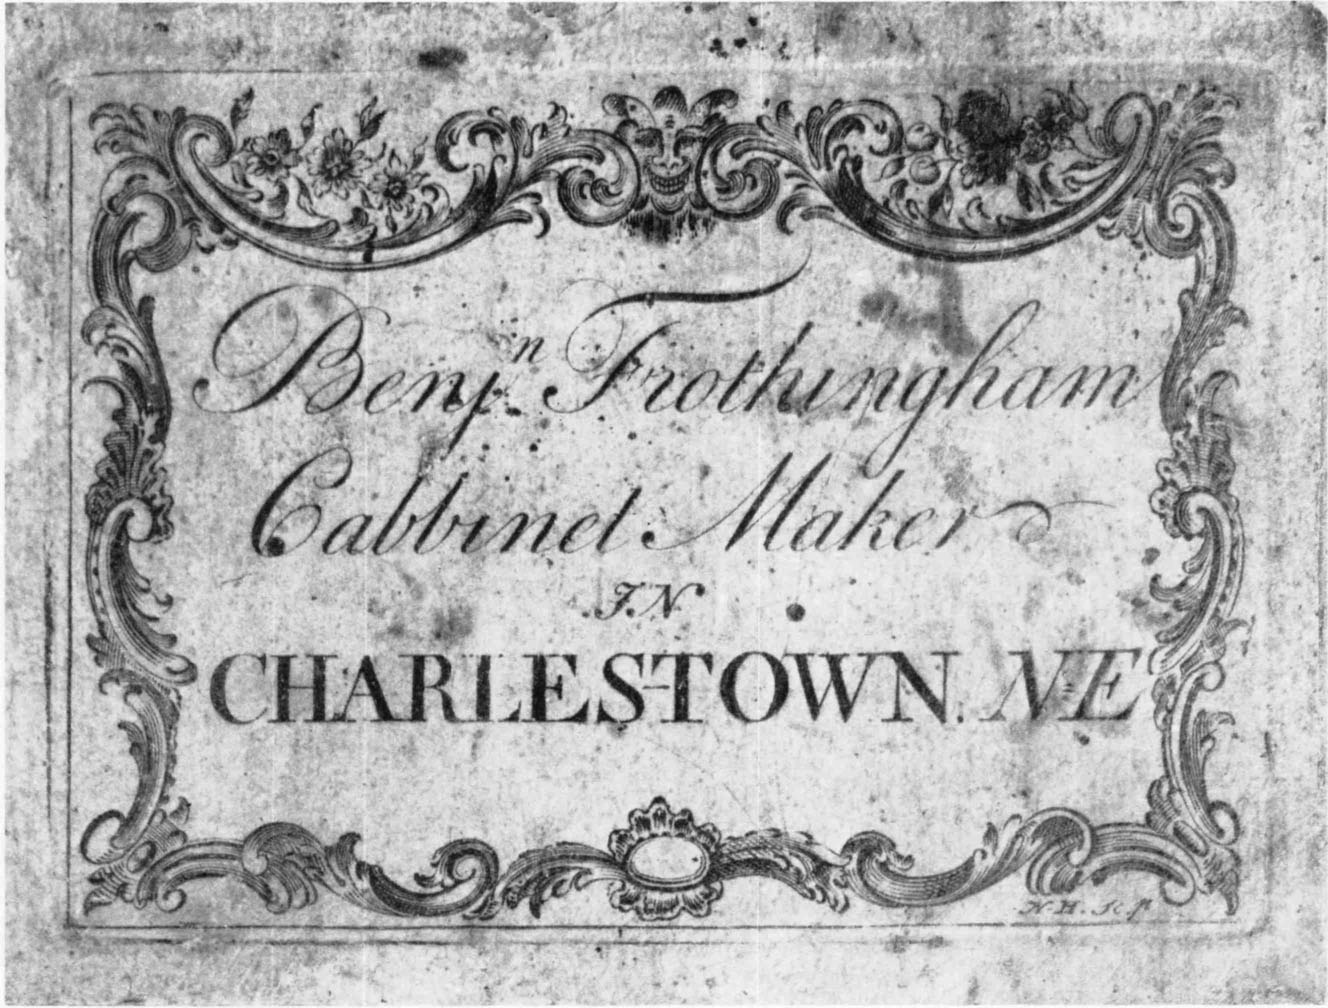 Benjⁿ. Frothingham
Cabbinet Maker
IN
CHARLESTOWN. NE
N.H. Scp